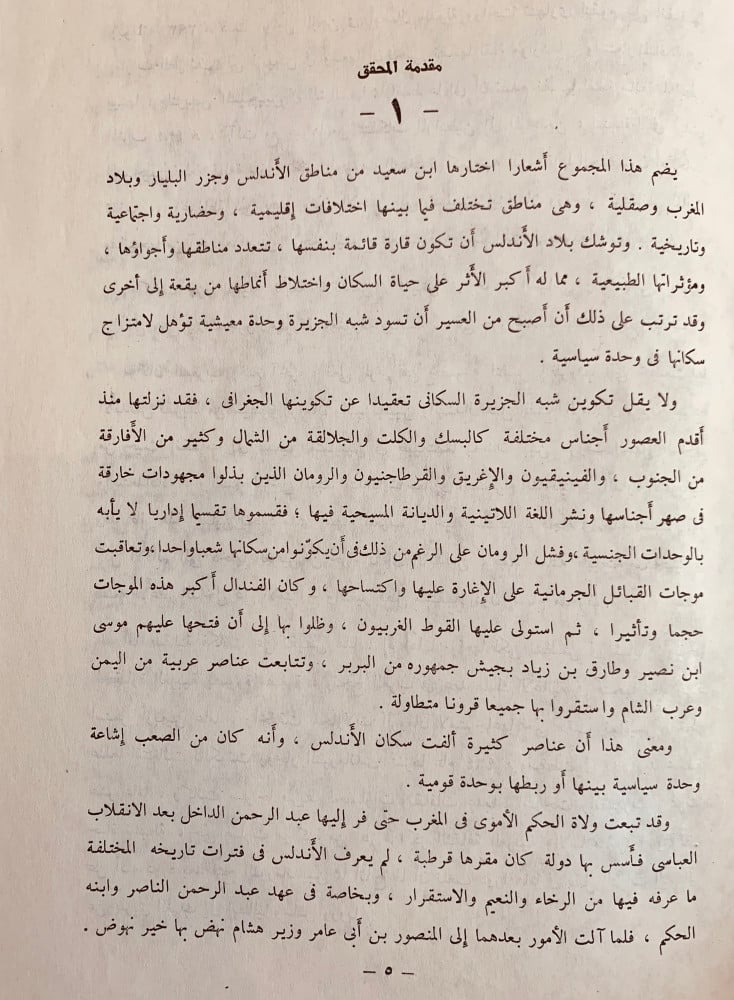 مقدمة المحقق
- ١ -
يضم هذا المجموع أَشعارا اختارها ابن سعيد من مناطق الأَندلس وجزر البليار وبلاد
المغرب وصقلية ، وهى مناطق تختلف فيما بينها اختلافات إِقليمية ، وحضارية واجتماعية
وتاريخية . وتوشك بلاد الأَندلس أَن تكون قارة قائمة بنفسها ، تتعدد مناطقها وأَجواؤها ،
ومؤثراتها الطبيعية ، مما له أَكبر الأَثر على حياة السكان واختلاط أَنماطها من بقعة إِلى أخرى
وقد ترتب على ذلك أَن أَصبح من العسير أَن تسود شبه الجزيرة وحدة معيشية تؤهل لامتزاج
سكانها فى وحدة سياسية .
ولا يقل تكوين شبه الجزيرة السكانى تعقيدا عن تكوينها الجغرافى ، فقد نزلتها منذ
أَقدم العصور أَجناس مختلفة كالبسك والكلت والجلالقة من الشمال وكثير من الأَفارقة
من الجنوب ، والفينيقيون والإِغريق والقرطاجنيون والرومان الذين بذلوا مجهودات خارقة
فى صهر أَجناسها ونشر اللغة اللاتينية والديانة المسيحية فيها ؛ فقسموها تقسيما إِداريا لا يأبه
بالوحدات الجنسية ،وفشل الرومان على الرغم من ذلك فى أَن يكوّنوا من سكانها شعبا واحدا ،وتعاقبت
موجات القبائل الجرمانية على الإِغارة عليها واكتساحها ، وكان الفندال أَكبر هذه الموجات
حجما وتأثيرا ، ثم استولى عليها القوط الغربيون ، وظلوا بها إِلى أَن فتحها عليهم موسى
ابن نصير وطارق بن زياد بجيش جمهوره من البربر ، وتتابعت عناصر عربية من اليمن
وعرب الشام واستقروا بها جميعا قرونا متطاولة .
ومعنى هذا أَن عناصر كثيرة ألفت سكان الأَندلس ، وأَنه كان من الصعب إِشاعة
وحدة سياسية بينها أَو ربطها بوحدة قومية .
وقد تبعت ولاة الحكم الأموى فى المغرب حتى فر إِليها عبد الرحمن الداخل بعد الانقلاب
العباسى فأَسس بها دولة كان مقرها قرطبة ، لم يعرف الأَندلس فى فترات تاريخه المختلفة
ما عرفه فيها من الرخاء والنعيم والاستقرار ، وبخاصة فى عهد عبد الرحمن الناصر وابنه
الحكم ، فلما آلت الأمور بعدهما إِلى المنصور بن أَبى عامر وزير هشام نهض بها خير نهوض .
- ٥ -